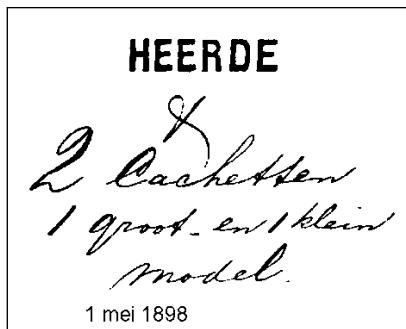 HEERDE
2 Cachetten
1 groot - en 1 klein
model.
1 mei 1898